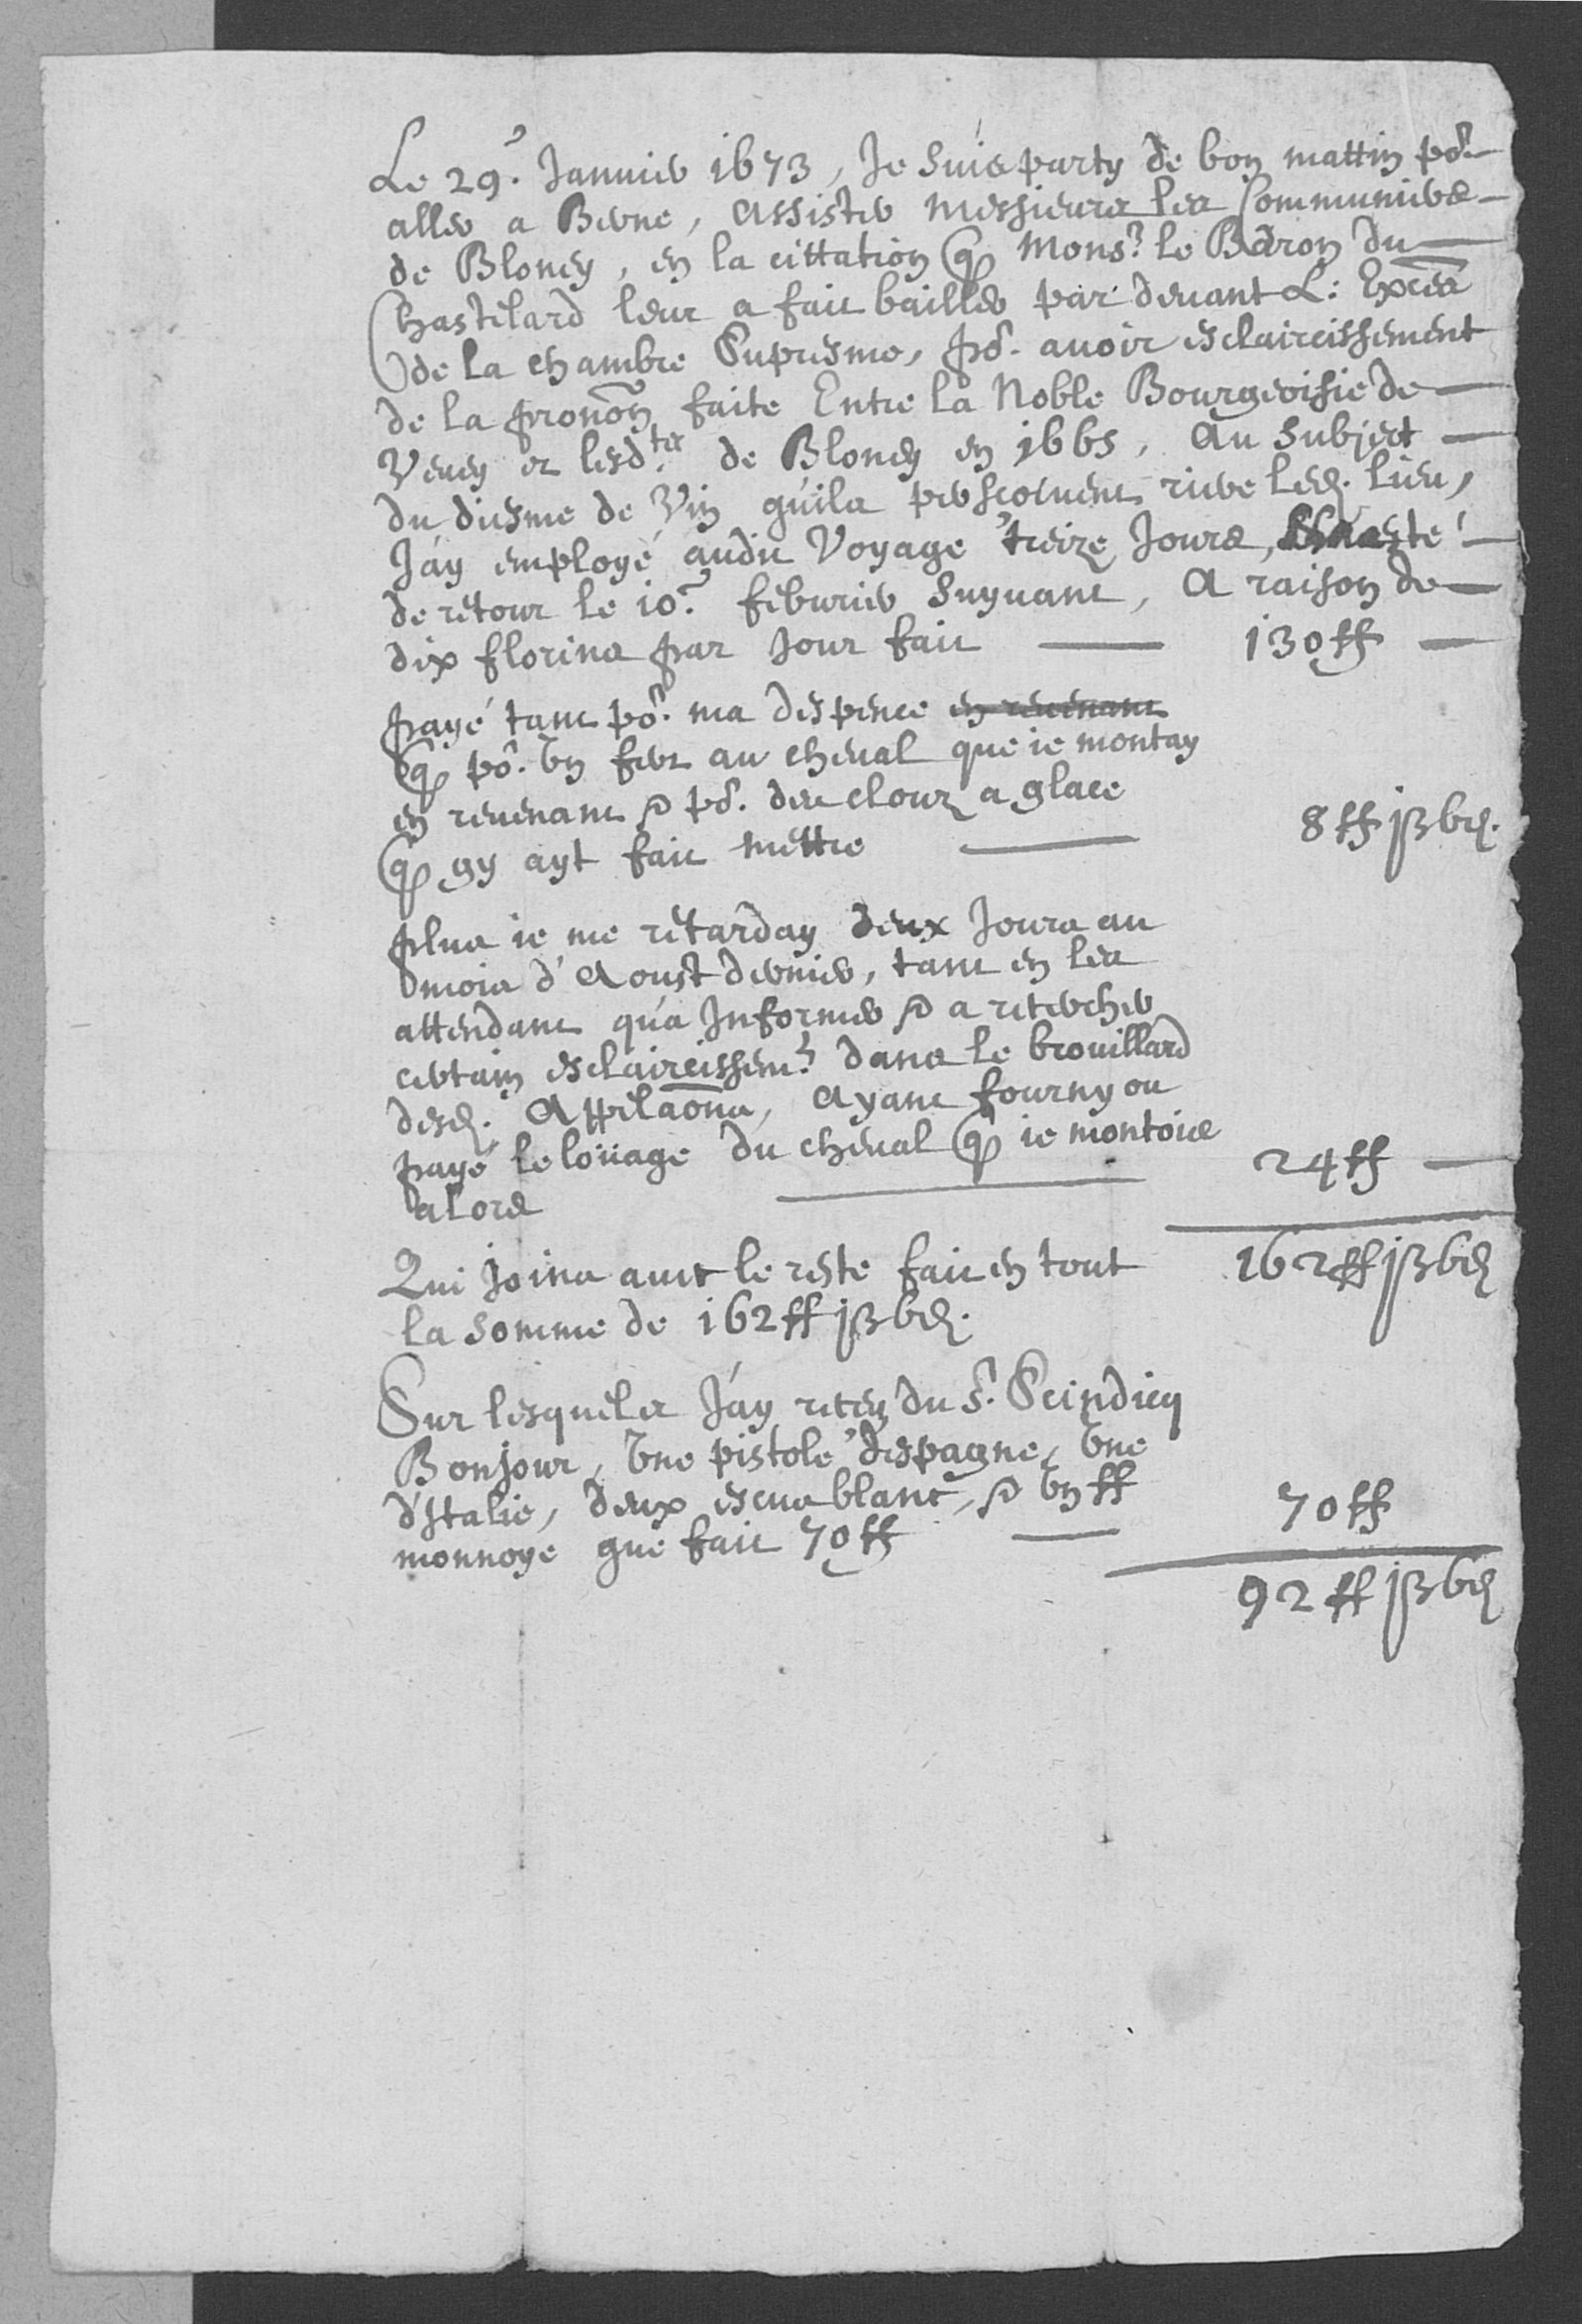 Le 29.e Januier 1673, Je suis party de bon mattin po.r
aller a Berne, assister Messieurs les Communiers
de Bloney, en la cittation q̃ Mons.r le Baron du
Chastelard leur a fait bailler par deuant L: Excẽs
de la chambre Supresme, po.r auoir esclaircissement
de la pronoñ faite Entre la Noble Bourgeoisie de
Veuey et lesd.tes de Bloney en 1665, Au Subject
du diesme de Vin quils perscoiuent riere led. lieu,
J'ay employé audit Voyage treize Jours, este
de retour le 10.e feburier suyuant, A raison de
dix florins par Jour fait 130 ff
payé tant po.r ma despence en reuenant
q̃ po.r Vn fert au cheual que ie montay
en reuenant & po.r des clouz a glace
q̃ gy ayt fait mettre 8 ff jß 6d.
plus ie me retarday deux Jours au
mois d'Aoust dernier, tant en les
attendant qu'a Informer & a rechercher
certain esclaircissem.t dans le brouillard
desd. Appellaõns, Ayant fourny ou
payé le loüage du cheual q̃ ie montois
alors 24 ff
Qui joins auec le reste fait en tout 162 ff jß 6d
la somme de 162 ff jß 6d.
Sur lesquels J'ay receu du S.r Scindicq
Bonjour, Vne pistole d'espagne, Vne
d'Italie, deux escus blanc, & Vn ff
monnoye que fait 70 ff 70 ff
92 ff jß 6d